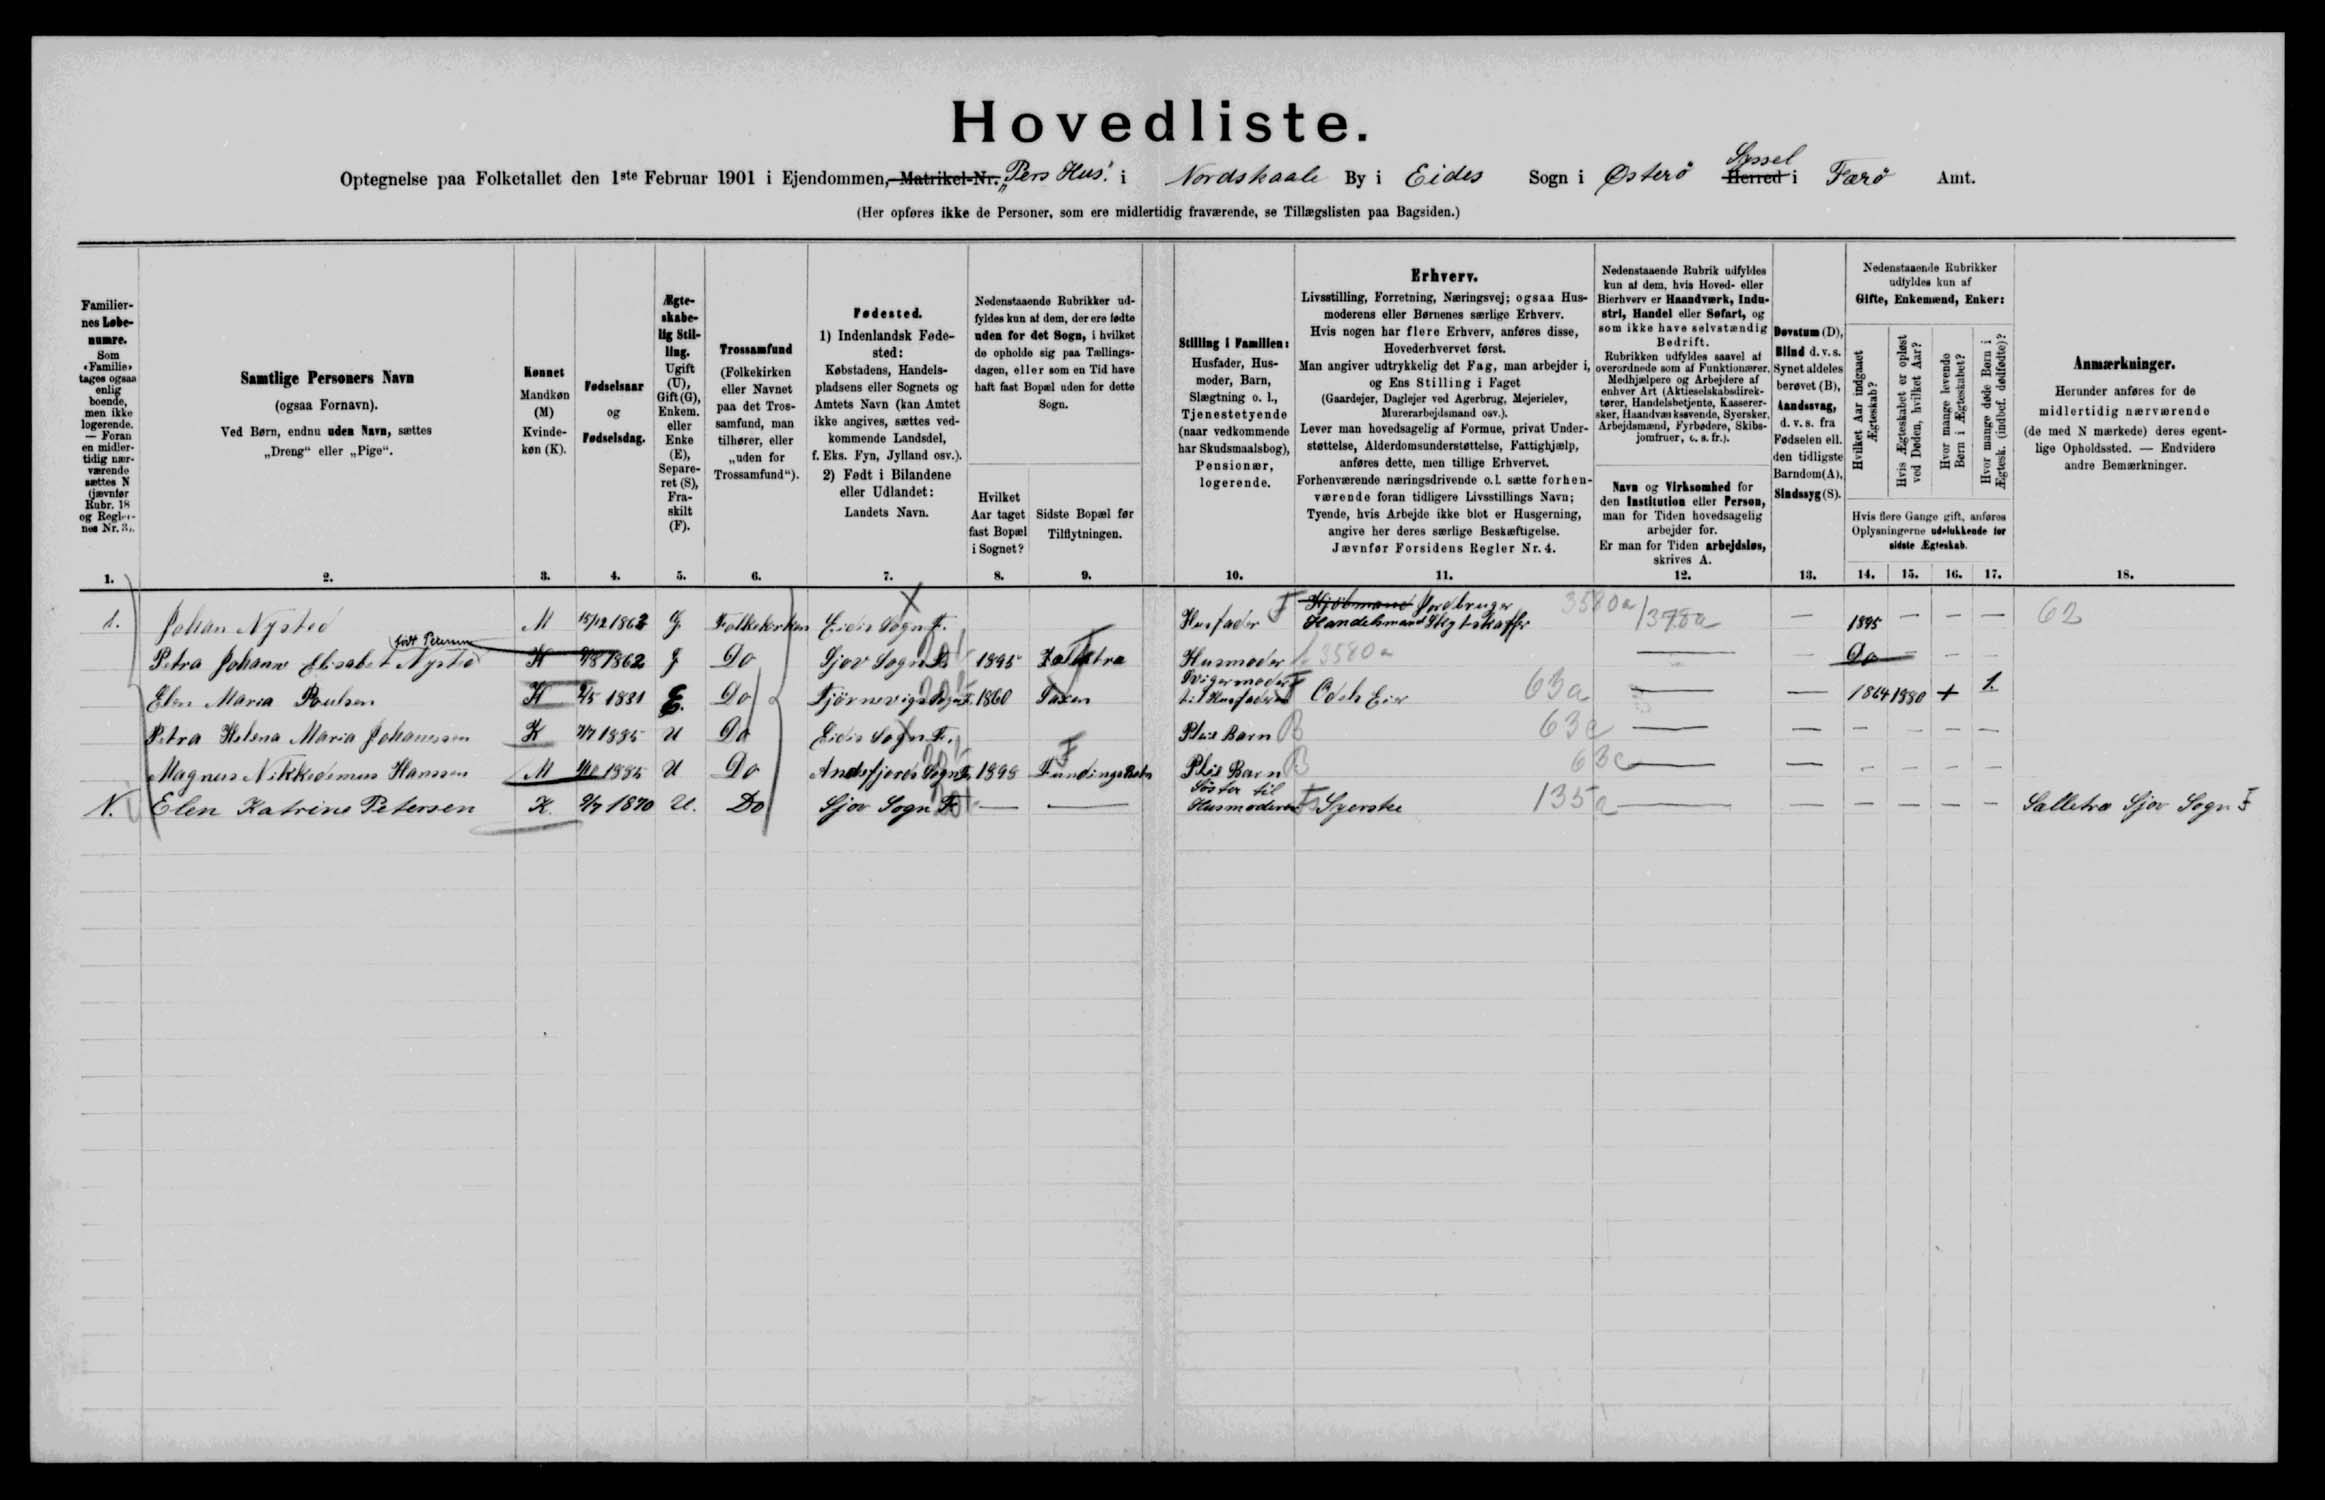 Hovedliste.
Optegnelse paa Folketallet den 1ste Februar 1901 i Ejendommen, Matrikel-Nr. „Pers Hus“ i Nordskaale By i Eides Sogn i Østerø Herred Syssel i Færø Amt.
(Her opføres ikke de Personer, som ere midlertidig fraværende, se Tillægslisten paa Bagsiden.)
Familiernes Løbenumre.
Som «Familie» tages ogsaa enlig boende, men ikke logerende. — Foran en midlertidig nærværende sættes N (jævnfør Rubr. 18 og Reglernes Nr. 3).
Samtlige Personers Navn
(ogsaa Fornavn).
Ved Børn, endnu uden Navn, sættes
„Dreng“ eller „Pige“.
Kønnet
Mandkøn (M)
Kvindekøn (K).
Fødselsaar
og
Fødselsdag.
Ægteskabelig Stilling.
Ugift (U), Gift (G), Enkem. eller Enke (E), Separeret (S), Fraskilt (F).
Trossamfund
(Folkekirken eller Navnet paa det Trossamfund, man tilhører, eller „uden for Trossamfund“).
Fødested.
1) Indenlandsk Fødested:
Købstadens, Handelspladsens eller Sognets og Amtets Navn (kan Amtet ikke angives, sættes vedkommende Landsdel, f. Eks. Fyn, Jylland osv.).
2) Født i Bilandene eller Udlandet:
Landets Navn.
Nedenstaaende Rubrikker udfyldes kun af dem, der ere fødte uden for det Sogn, i hvilket de opholde sig paa Tællingsdagen, eller som en Tid have haft fast Bopæl uden for dette Sogn.
Hvilket Aar taget fast Bopæl i Sognet?
Sidste Bopæl før Tilflytningen.
Stilling i Familien:
Husfader, Husmoder, Barn, Slægtning o. l., Tjenestetyende (naar vedkommende har Skudsmaalsbog), Pensionær, logerende.
Erhverv.
Livsstilling, Forretning, Næringsvej; ogsaa Husmoderens eller Børnenes særlige Erhverv.
Hvis nogen har flere Erhverv, anføres disse, Hovederhvervet først.
Man angiver udtrykkelig det Fag, man arbejder i, og Ens Stilling i Faget
(Gaardejer, Daglejer ved Agerbrug, Mejerielev, Murerarbejdsmand osv.).
Lever man hovedsagelig af Formue, privat Understøttelse, Alderdomsunderstøttelse, Fattighjælp, anføres dette, men tillige Erhvervet.
Forhenværende næringsdrivende o. l. sætte forhenværende foran tidligere Livsstillings Navn; Tyende, hvis Arbejde ikke blot er Husgerning, angive her deres særlige Beskæftigelse.
Jævnfør Forsidens Regler Nr. 4.
Nedenstaaende Rubrik udfyldes kun af dem, hvis Hoved- eller Bierhverv er Haandværk, Industri, Handel eller Søfart, og som ikke have selvstændig Bedrift.
Rubrikken udfyldes saavel af overordnede som af Funktionærer, Medhjælpere og Arbejdere af enhver Art (Aktieselskabsdirektører, Handelsbetjente, Kasserersker, Haandværkssvende, Syersker, Arbejdsmænd, Fyrbødere, Skibsjomfruer, o. s. fr.).
Navn og Virksomhed for den Institution eller Person, man for Tiden hovedsagelig arbejder for.
Er man for Tiden arbejdsløs, skrives A.
Døvstum (D), Blind d. v. s. Synet aldeles berøvet (B), Aandssvag, d. v. s. fra Fødselen ell. den tidligste Barndom (A), Sindssyg (S).
Nedenstaaende Rubrikker udfyldes kun af
Gifte, Enkemænd, Enker:
Hvilket Aar indgaaet Ægteskab?
Hvis Ægteskabet er opløst ved Døden, hvilket Aar?
Hvor mange levende Børn i Ægteskabet?
Hvor mange døde Børn i Ægtesk. (indbef. dødfødte)?
Hvis flere Gange gift, anføres Oplysningerne udelukkende for sidste Ægteskab.
Anmærkninger.
Herunder anføres for de midlertidig nærværende (de med N mærkede) deres egentlige Opholdssted. — Endvidere andre Bemærkninger.
1. 2. 3. 4. 5. 6. 7. 8. 9. 10. 11. 12. 13. 14. 15. 16. 17. 18.
1. Johan Nysted M 15/12 1862 G Folkekirken Eides Sogn F. Husfader F Kjöbmand Jordbruger Handelsmand 3580a 1378a — 1895 — — — 62
Petra Johanne Elisabet Nysted født Petersen K 1862 G Do Sjov Sogn F. 1895 Husmoder 3580a — — Do — — —
Elen Maria Poulsen K 1831 E. Do Tjørnevigs Sogn F. 1860 Svigermoder til Husfaderen F Odels Eier 63a — — 1864 1880 + 1.
Petra Helena Maria Johannesen K 1885 U Do Eides Sogn F. Pleie Barn B 63c — — — — — —
Magnus Nikkodemus Hanssen M 1885 U Do Andefjords Sogn F. 1898 Fundings Botn F Pleie Barn B 63c — — — — — —
N. Elen Katrine Petersen K. 1870 U. Do Sjov Sogn F. — — Søster til Husmoderen F Syerske 135a — — — — — — Salletra Sjov Sogn F